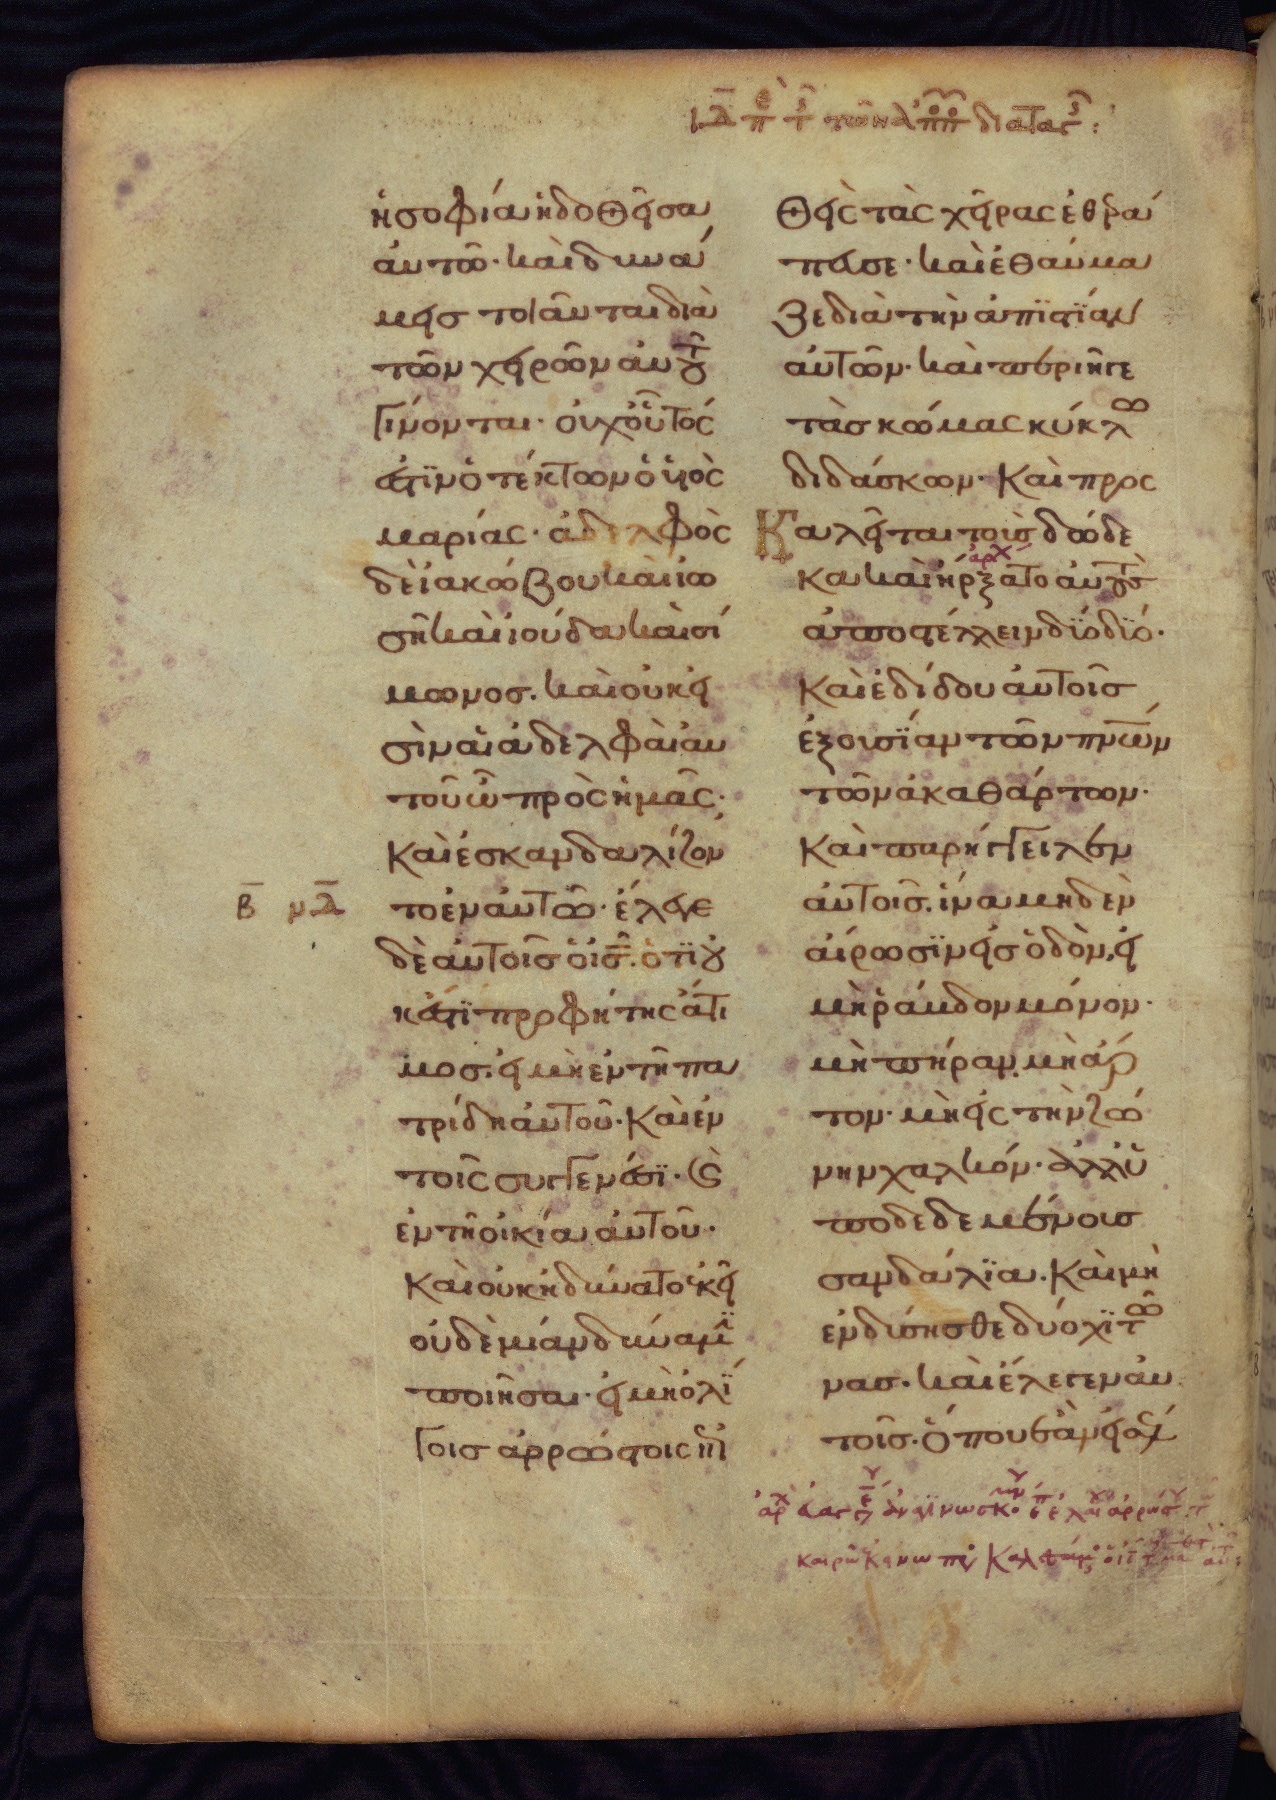 ἡ σοφία ἡ δοθεῖσα
αὐτῶ· καὶ δυνά
μεις τοιαῦται διὰ
τῶν χειρῶν αὐτοῦ
γίνονται· οὐχ οὗτός
ἐστϊν ὁ τέκτων ὁ υἱὸς
μαρίας· ἀδελφὸς
δὲ ἰακώβου καὶ ἰω
σῆ καὶ ἰούδα καὶ σί
μωνος. καὶ οὐκ εἰ
σὶν αἱ ἀδελφαὶ αὐ
τοῦ ὧδε πρὸς ἡμᾶς·
Καὶ ἐσκανδαλίζον
το ἐν αὐτῶ· ἔλεγε
δὲ αὐτοῖς ὁ ἰς̅. ὅτϊ οὐ
κ ἔστϊ προφήτης ἄτι
μος. εἰ μὴ ἐν τῆ πα
τρίδη αὐτοῦ· Καὶ ἐν
τοῖς συγγενέσϊ· καὶ
ἐν τῆ οἰκία αὐτοῦ·
Καὶ οὐκ ἠδύνατο ἐκεῖ
οὐδὲ μίαν δύναμϊν
ποιῆσαι· εἰ μὴ ὀλί
γοις ἀρρώστοις ἐπι
β̅ ν̅δ̅
θεὶς τὰς χεῖρας ἐθερά
πευσε· καὶ ἐθαύμα
ζε διὰ τὴν ἀπϊστϊαν
αὐτῶν· καὶ περιῆγε
τὰς κώμας κύκλω
διδάσκων· Καὶ προς
Καλεῖται τοὶς δώδε
κα καὶ ἤρξατο αὐτοὺς
ἀποστέλλειν δϊὸ δϊό·
Καὶ ἐδίδου αὐτοῖς
ἐξουσϊαν τῶν πν̅ων
τῶν ἀκαθάρτων·
Καὶ παρήγγειλεν
αὐτοῖς. ἵνα μηδὲν
αἴρωσϊν εἰς ὁδὸν, εἰ
μὴ ῥάβδον μόνον·
μὴ πήραν. μὴ ἄρ
τον· μὴ εἰς τὴν ζώ
νην χαλκόν· ἀλλ' ὑ
ποδεδεμένοις
σανδάλϊα. Καὶ μὴ
ἐνδύσησθε δύο χϊτῶ
νας. καὶ ἔλεγεν αὐ
τοῖς. ὅπου ἐὰν εἰσέλ